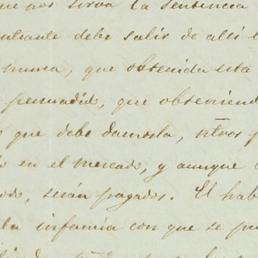 que nos sirva la sentencia
debe salir de alli
nunca, que obtenida esta
persuadid, que obteniend
que debe darnosla, otros p
en el mercado, y aunque
serán pagados. El hab
la infamia con que se pu